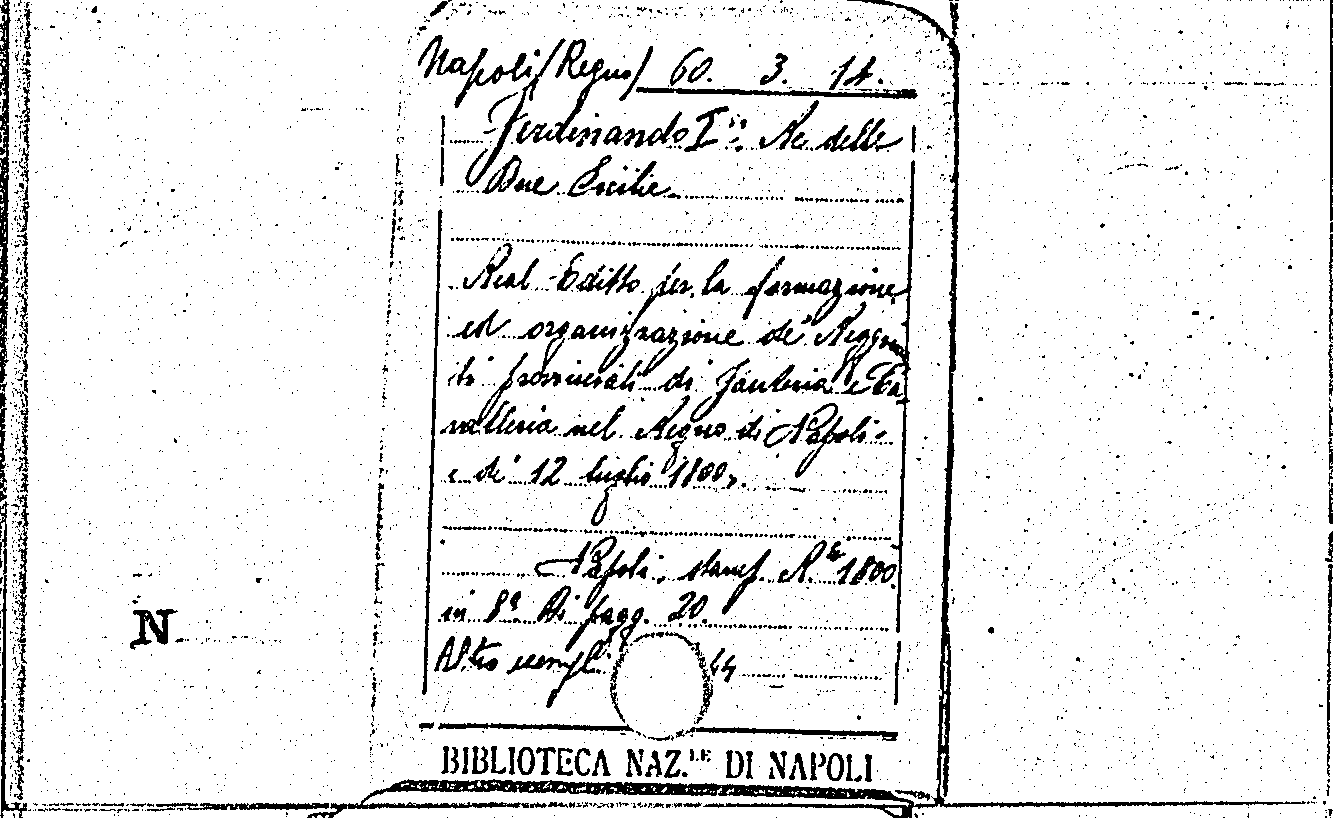 Napoli (Regno) 60. 3. 14.
Ferdinando I°: Re delle
Due Sicilie.
Real Editto per la formazione
ed organizzazione de' Reggimen
ti provinciali di Fanteria e Ca
valleria nel Regno di Napoli.
de' 12 luglio 1800.
Napoli, stamp. R.le 1800.
in 8°. Di pagg. 20.
Altro esempl 44
N
BIBLIOTECA NAZ.LE DI NAPOLI